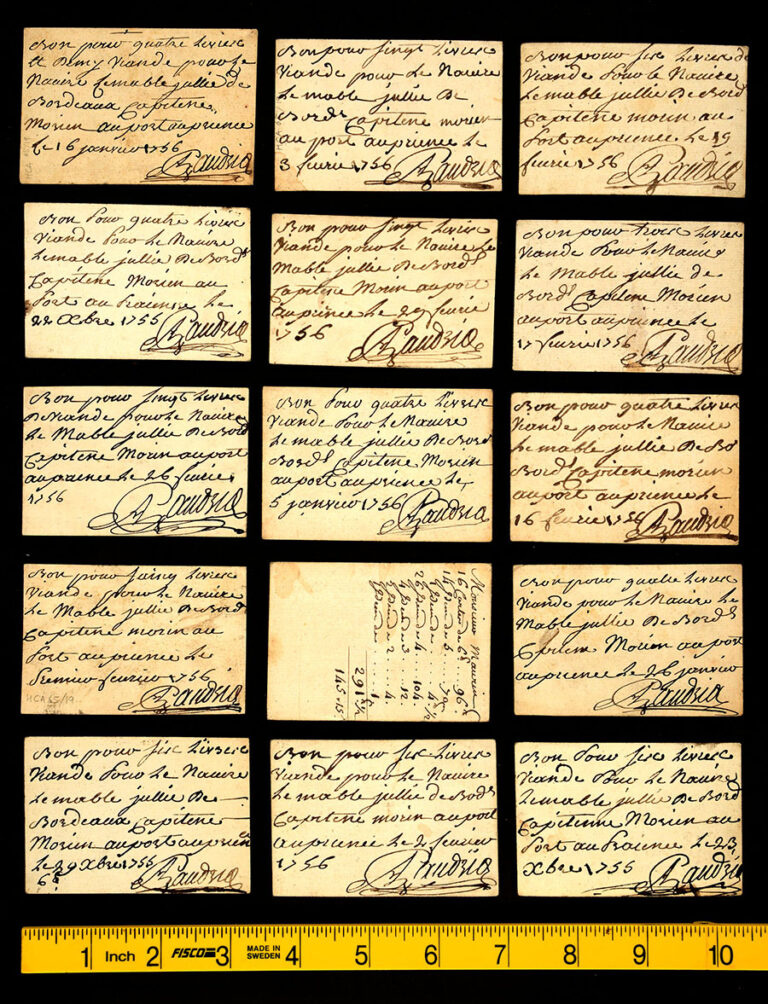 Bon pour quatre Livres
et Demy Viande pour Le
Navire Lemable jullie de
Bordeaux Capitene
Morien au port au prience
Le 16 janvier 1756
Gaudric
Bon pour sinq Livres
Viande pour Le Navire
Le mable jullie De
Bord.x Capitene morien
au port au prience Le
3 fevrie 1756
Bon pour six Livres de
Viande Pour le Navire
Lemable jullie De Bord
Capitene Morien au
Port au prience Le 19
fevrie 1756
Bon Pour quatre Livres
Viande Pour Le Navire
Lemable jullie De Bord.x
Capitene Morien au
Port au Prience Le
22 Xbre 1755
Bon pour sinq Livres
Viande pour Le Navire Le
Mable jullie De Bord.x
Capitene Morin au port
au prince Le 29 fevrie
1756
Bon pour trois Livres
Viande Pour Le Navire
Le Mable jullie de
Bord.x Capitene Morien
au port au prience Le
17 fevrie 1756
Bon pour sinq Livres
De Viande pour Le Navire
Le Mable jullie De Bord
Capitene Morin au port
au prience Le 26 fevrie
1756
Bon Pour quatre Livres
Viande Pour Le Navire
Le mable jullie De Bord
Bord.x Capitene Morien
au port au prience Le
5 janvier 1756
Bon pour quatre Livres
Viande pour Le Navire
Le mable jullie De Bd
Bord.x Capitene morien
au port au prience Le
16 fevrie 1756
Bon pour sinq Livres
Viande pour Le Navire
Le Mable jullie De Bord.x
Capitene morin au
Port au prience Le
Premier fevrier 1756
HCA 65/19
Monsieur Maurin
16 Cartes de 6# 96..
14 Dun De 5.. 70
1 Dun De 4 1/2
26 Dun De 4.. 104
4 Dun De 3.. 12
2 Dun De 2.. 4
1 Dun De 1
291 1/2
145.15
Bon pour quatre Livres
Viande pour Le Navire Le
Mable jullie De Bord.x
Capitene Morien au port
au prience Le 26 janvier
Bon pour six Livres
Viande Pour Le Navire
Le mable jullie De
Bordeaux Capitene
Morien au port au prience
Le 29 Xbre 1755
6#
Bon pour six Livres
Viande pour Le Navire
Le mable jullie de Bord.x
Capitene morin au port
au prience Le 2 fevrier
1756
Bon Pour six Livres
Viande Pour Le Navire
Lemable jullie De Bord
Capitenne Morien au
Port au Prience Le 23
Xbre 1755
1 Inch 2 FISCO 3 MADE IN SWEDEN 4 5 6 7 8 9 10